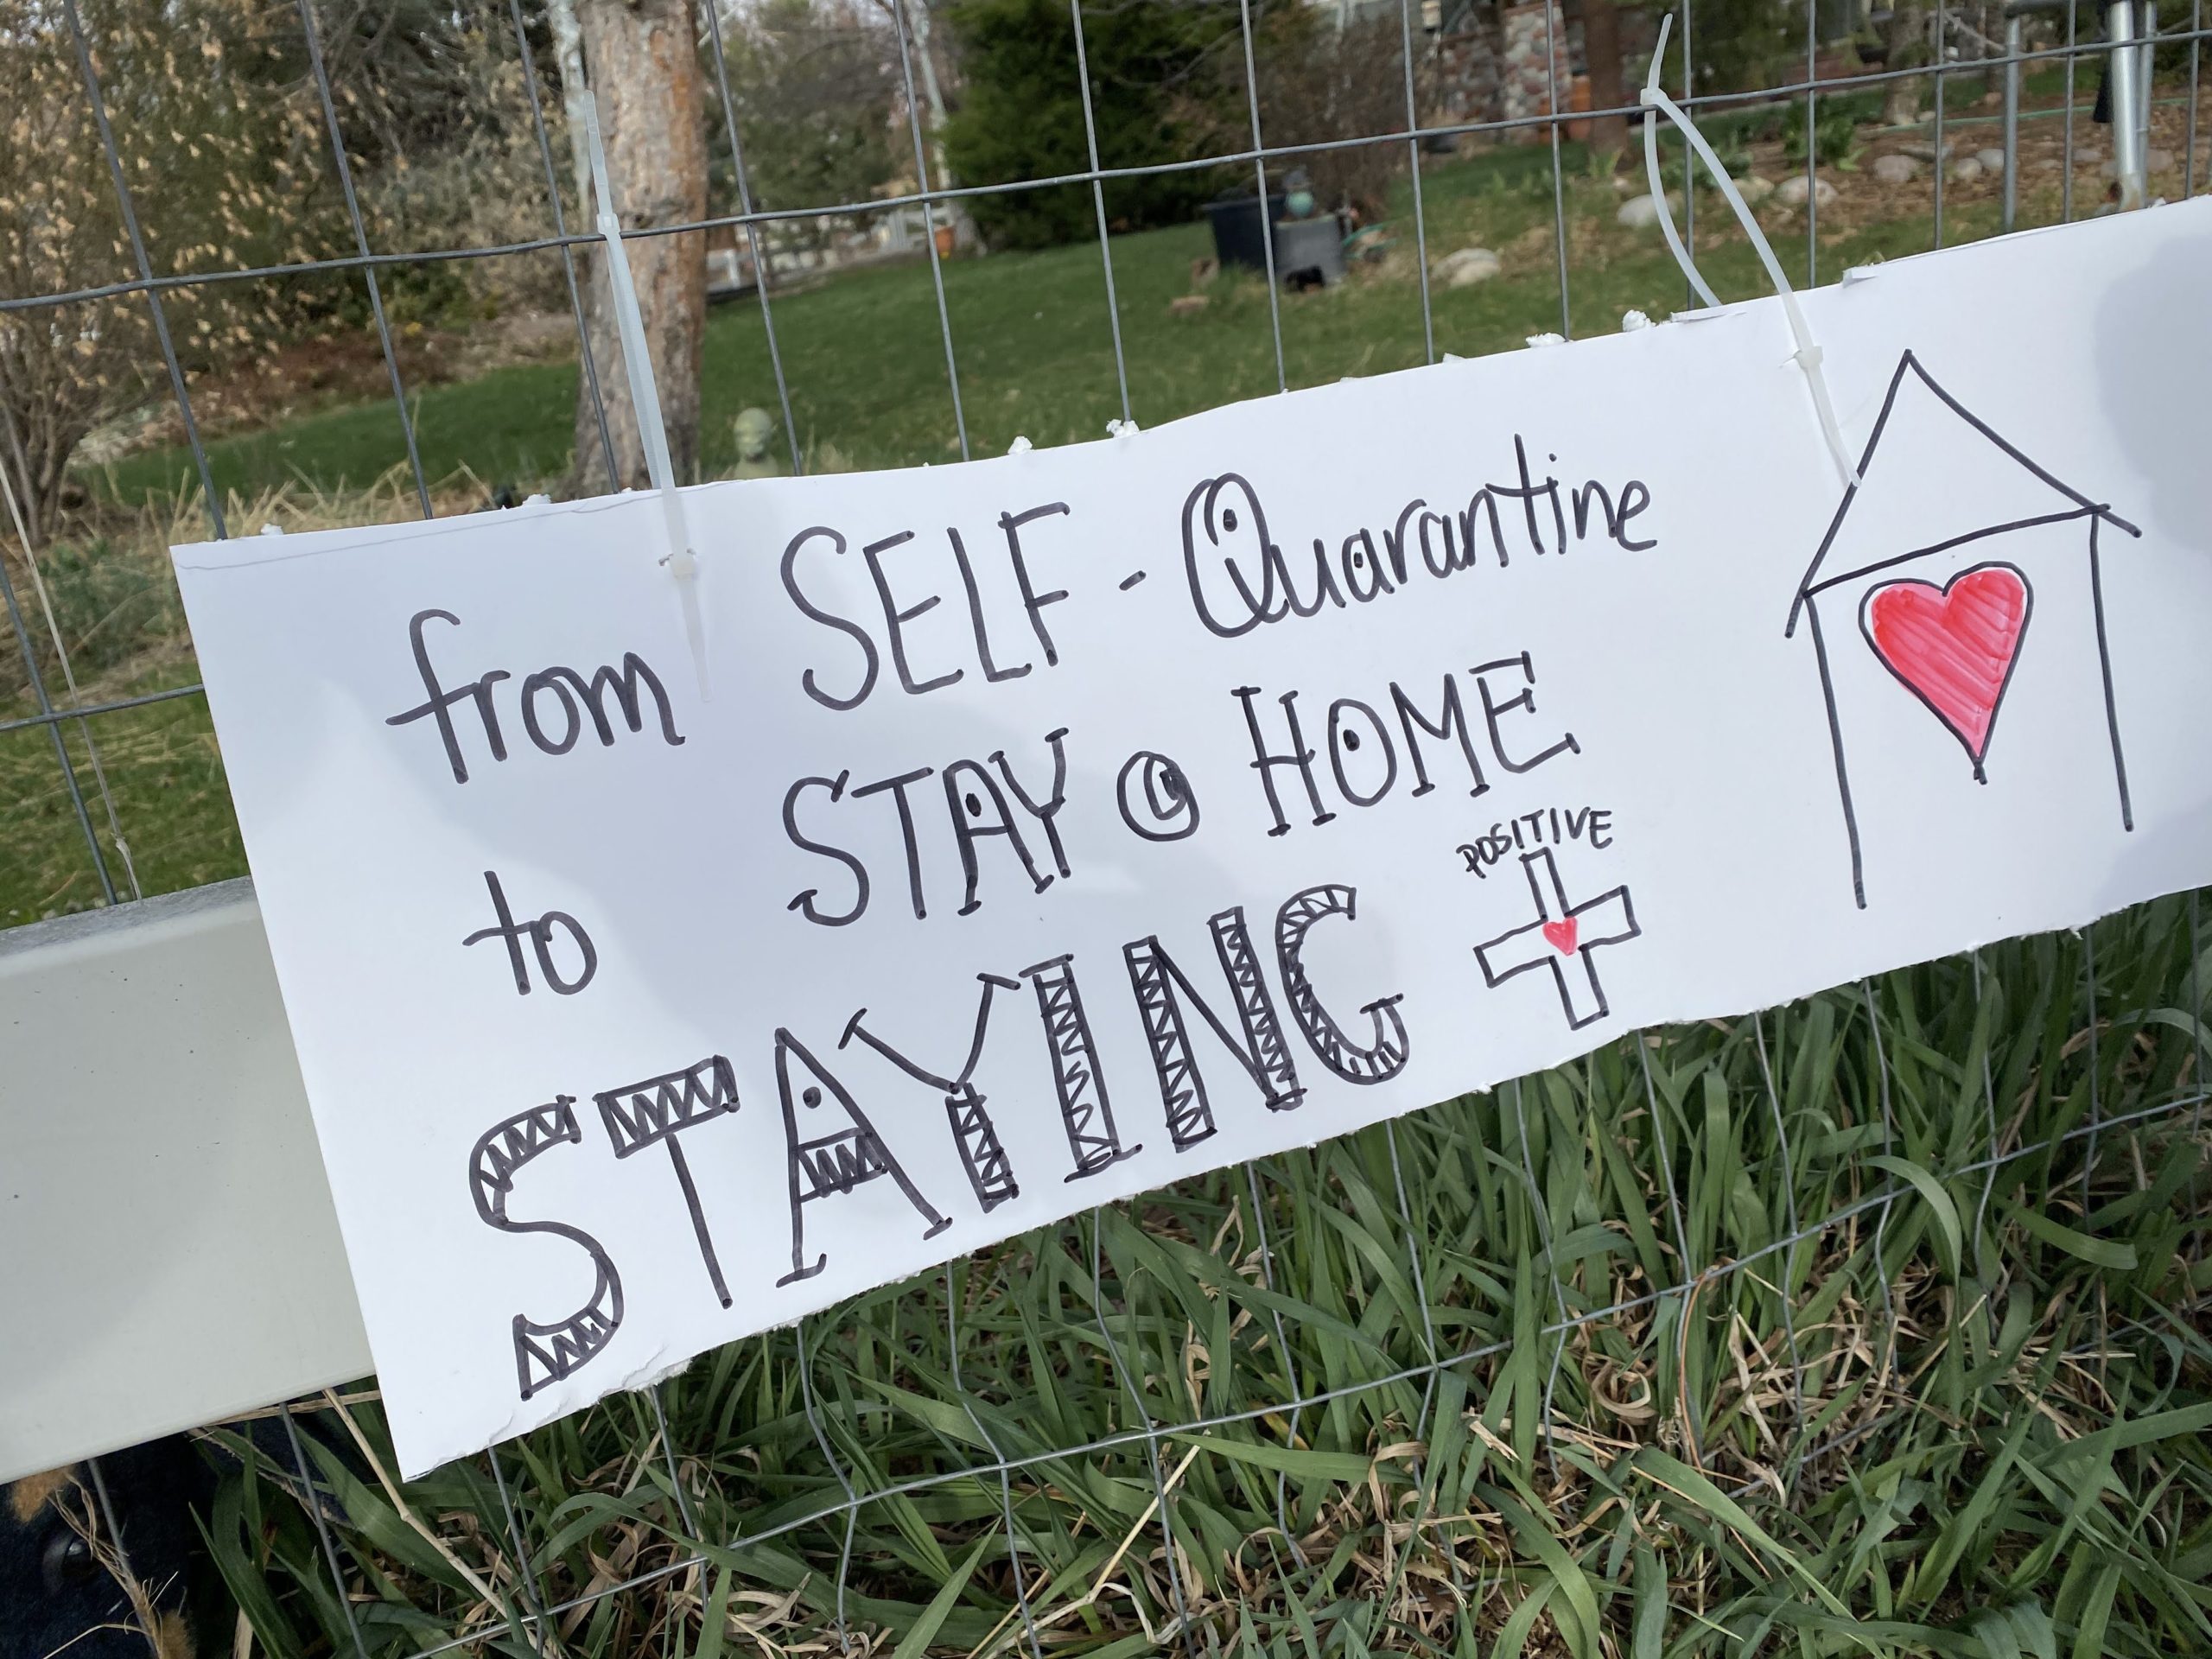 from SELF-Quarantine
to STAY @ HOME
POSITIVE
STAYING +